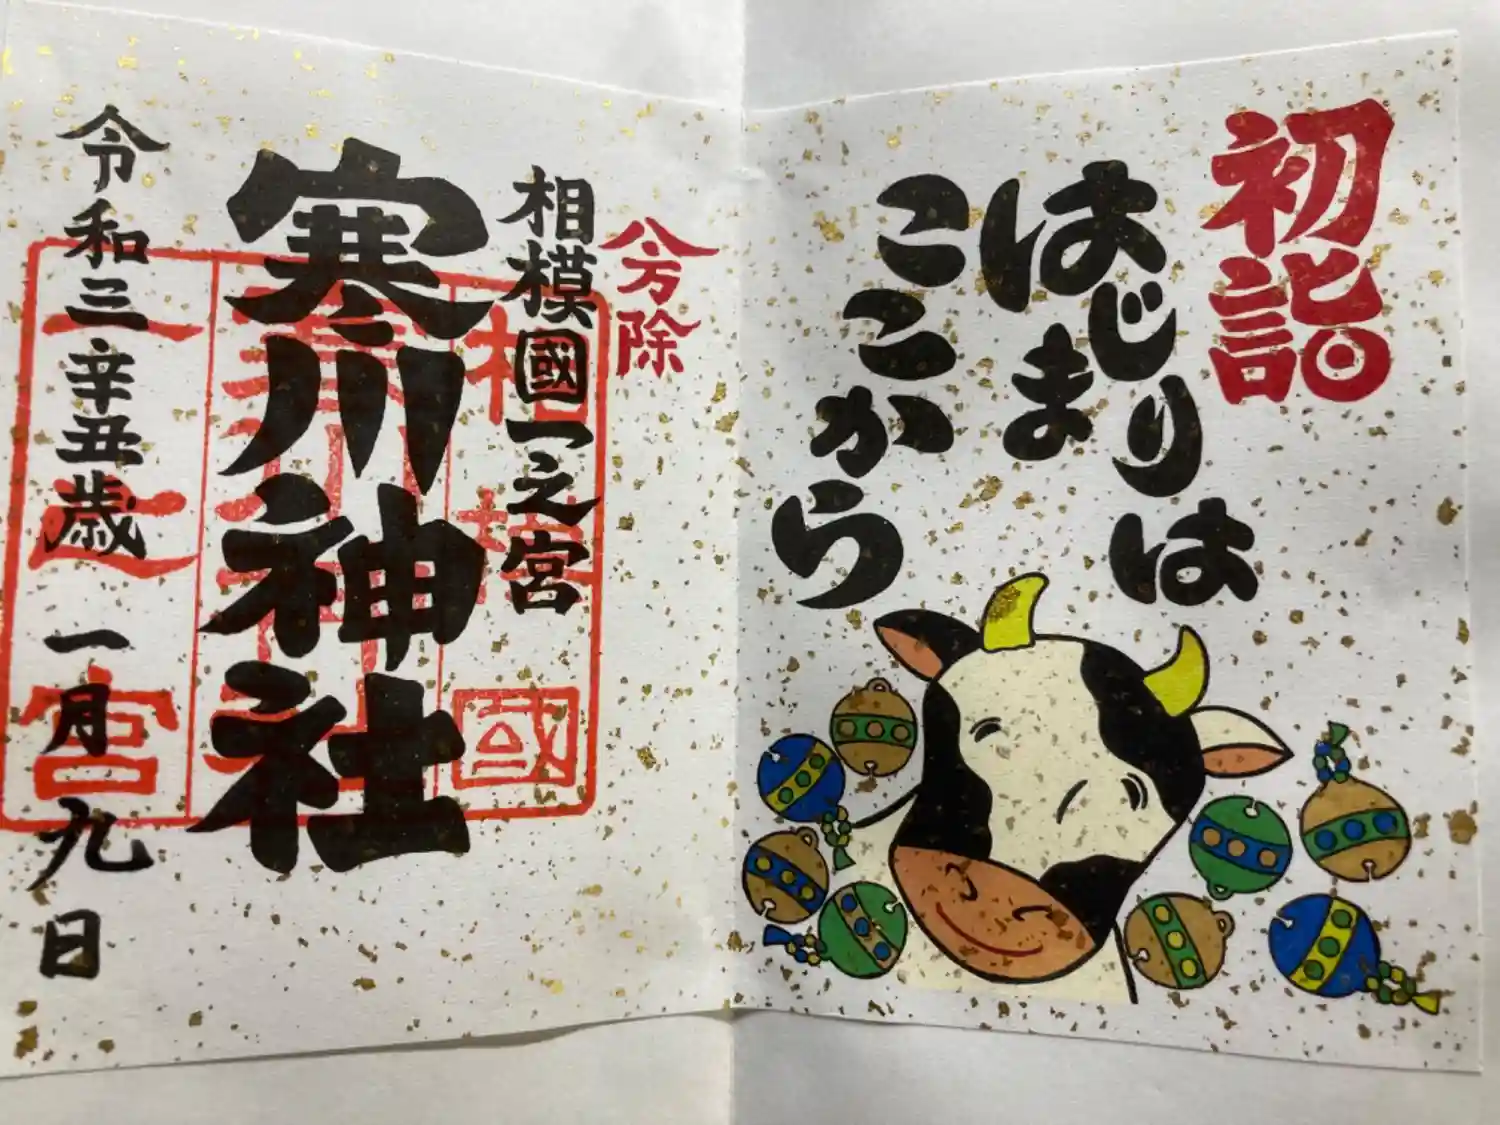 初詣
はじまりは
ここから
八方除
相模國一之宮
寒川神社
令和三辛丑歳一月九日
相模國
寒川神社
一之宮